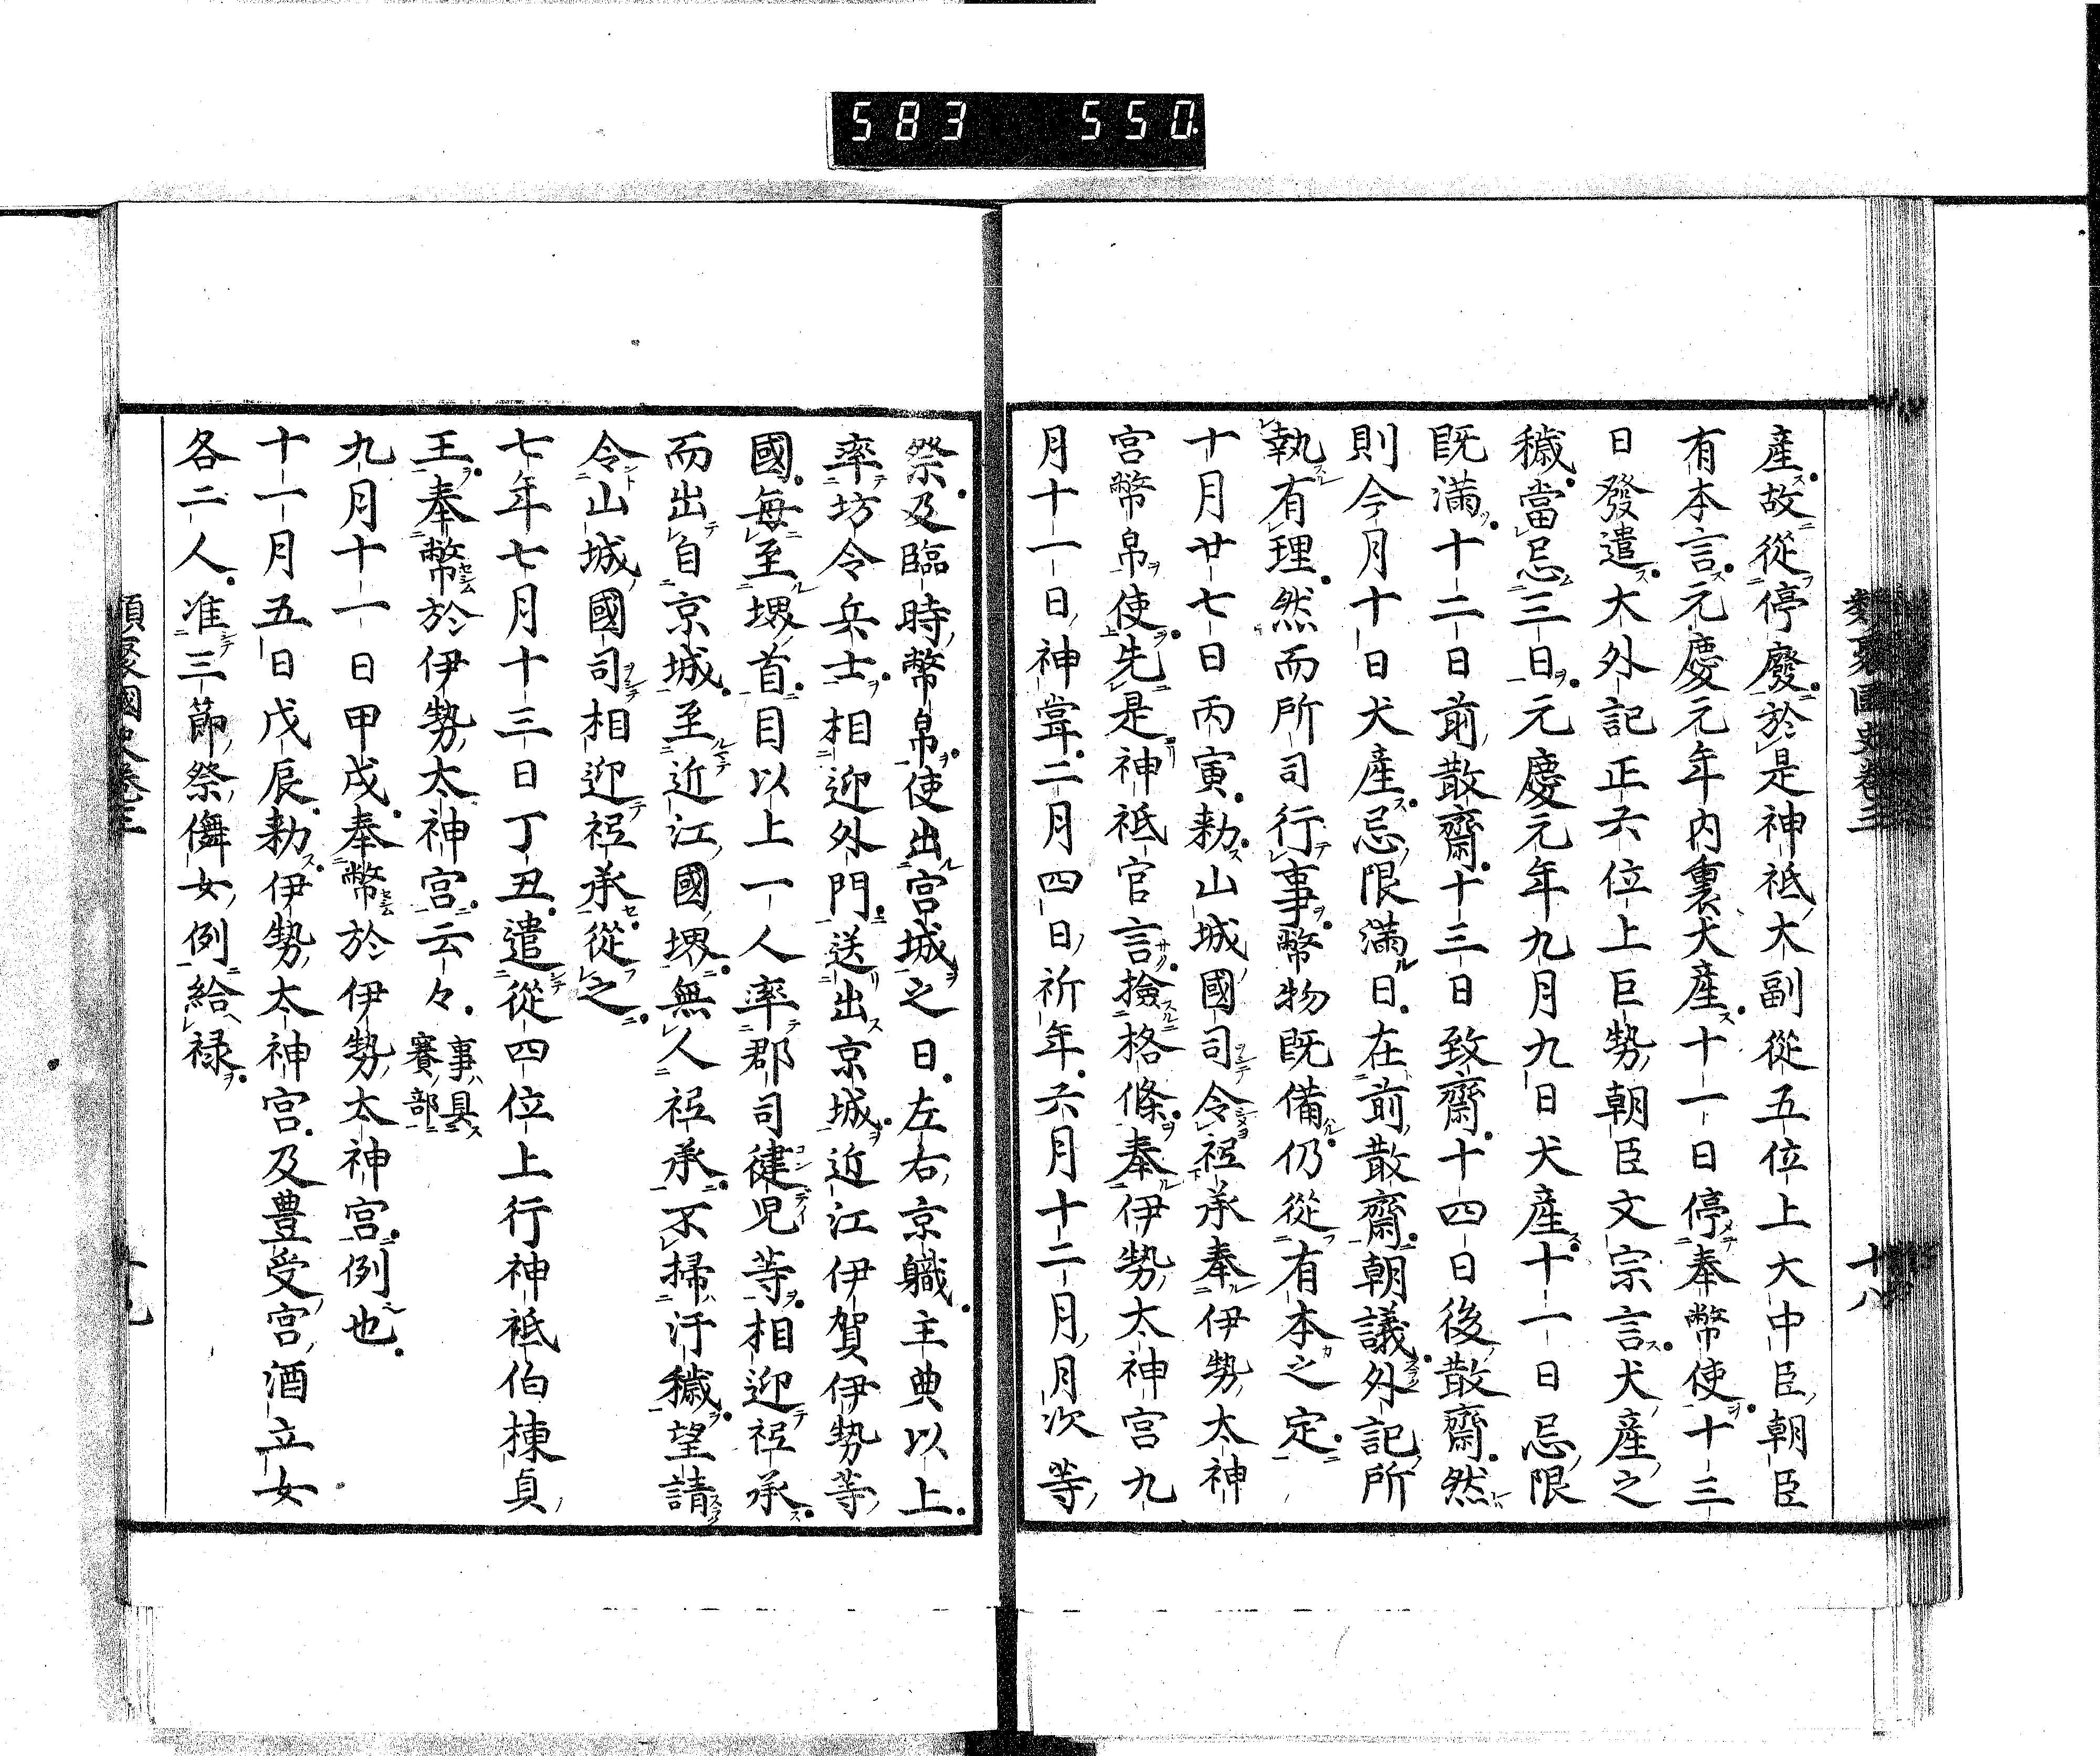 583 550
類聚國史卷三 十八
產故從停廢於是神祇大副從五位上大中臣朝臣
有本言元慶元年内裏犬產十一日停奉幣使十三
日發遣大外記正六位上巨勢朝臣文宗言犬產之
穢當忌三日元慶元年九月九日犬產十一日忌限
既滿十二日前散齋十三日致齋十四日後散齋然
則今月十日犬產忌限滿日在前散齋朝議外記所
執有理然而所司行事幣物既備仍從有本之定
十月廿七日丙寅勅山城國司令祗承奉伊勢太神
宮幣帛使先是神祇官言撿格條奉伊勢太神宮九
月十一日神甞二月四日祈年六月十二月月次等
祭及臨時幣帛使出宮城之日左右京職主典以上
率坊令兵士相迎外門送出京城近江伊賀伊勢等
國每至堺首目以上一人率郡司健児等相迎祗承
而出自京城至近江國堺無人祗承不掃汙穢望請
令山城國司相迎祗承從之
七年七月十三日丁丑遣從四位上行神祇伯棟貞
王奉幣於伊勢太神宮云々事具賽部
九月十一日甲戌奉幣於伊勢太神宮例也
十一月五日戊辰勅伊勢太神宮及豊受宮酒立女
各二人准三節祭儛女例給祿
類聚國史卷三 十九